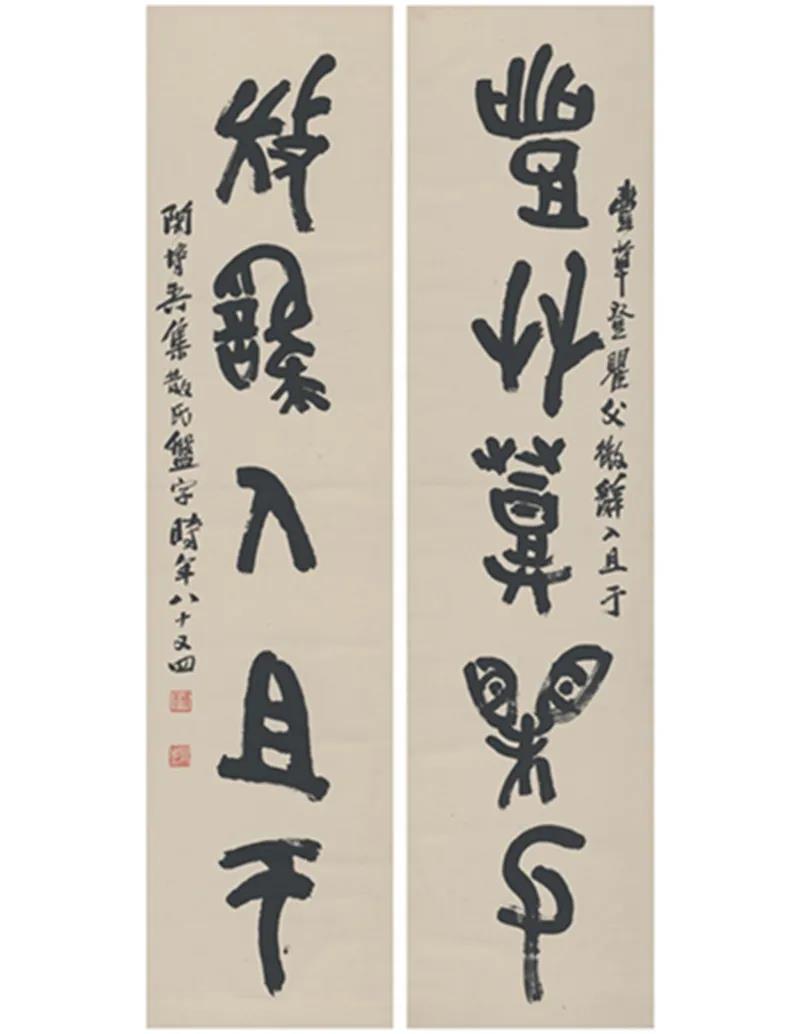 豐草登瞿父微辭入且于
豐草登瞿父
微辭入且于
閔吾集散氏盤字時年八十又四